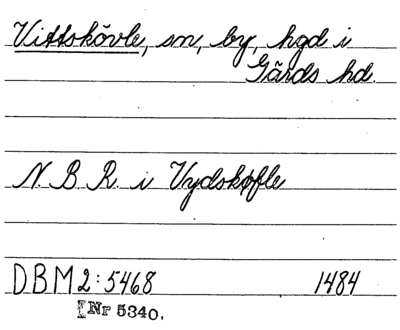 Vittskövle, sn, by, hgd i
Gärds hd.
N. B. R. i Vydskøfle
DBM 2:5468 1484
[Nr 5340.